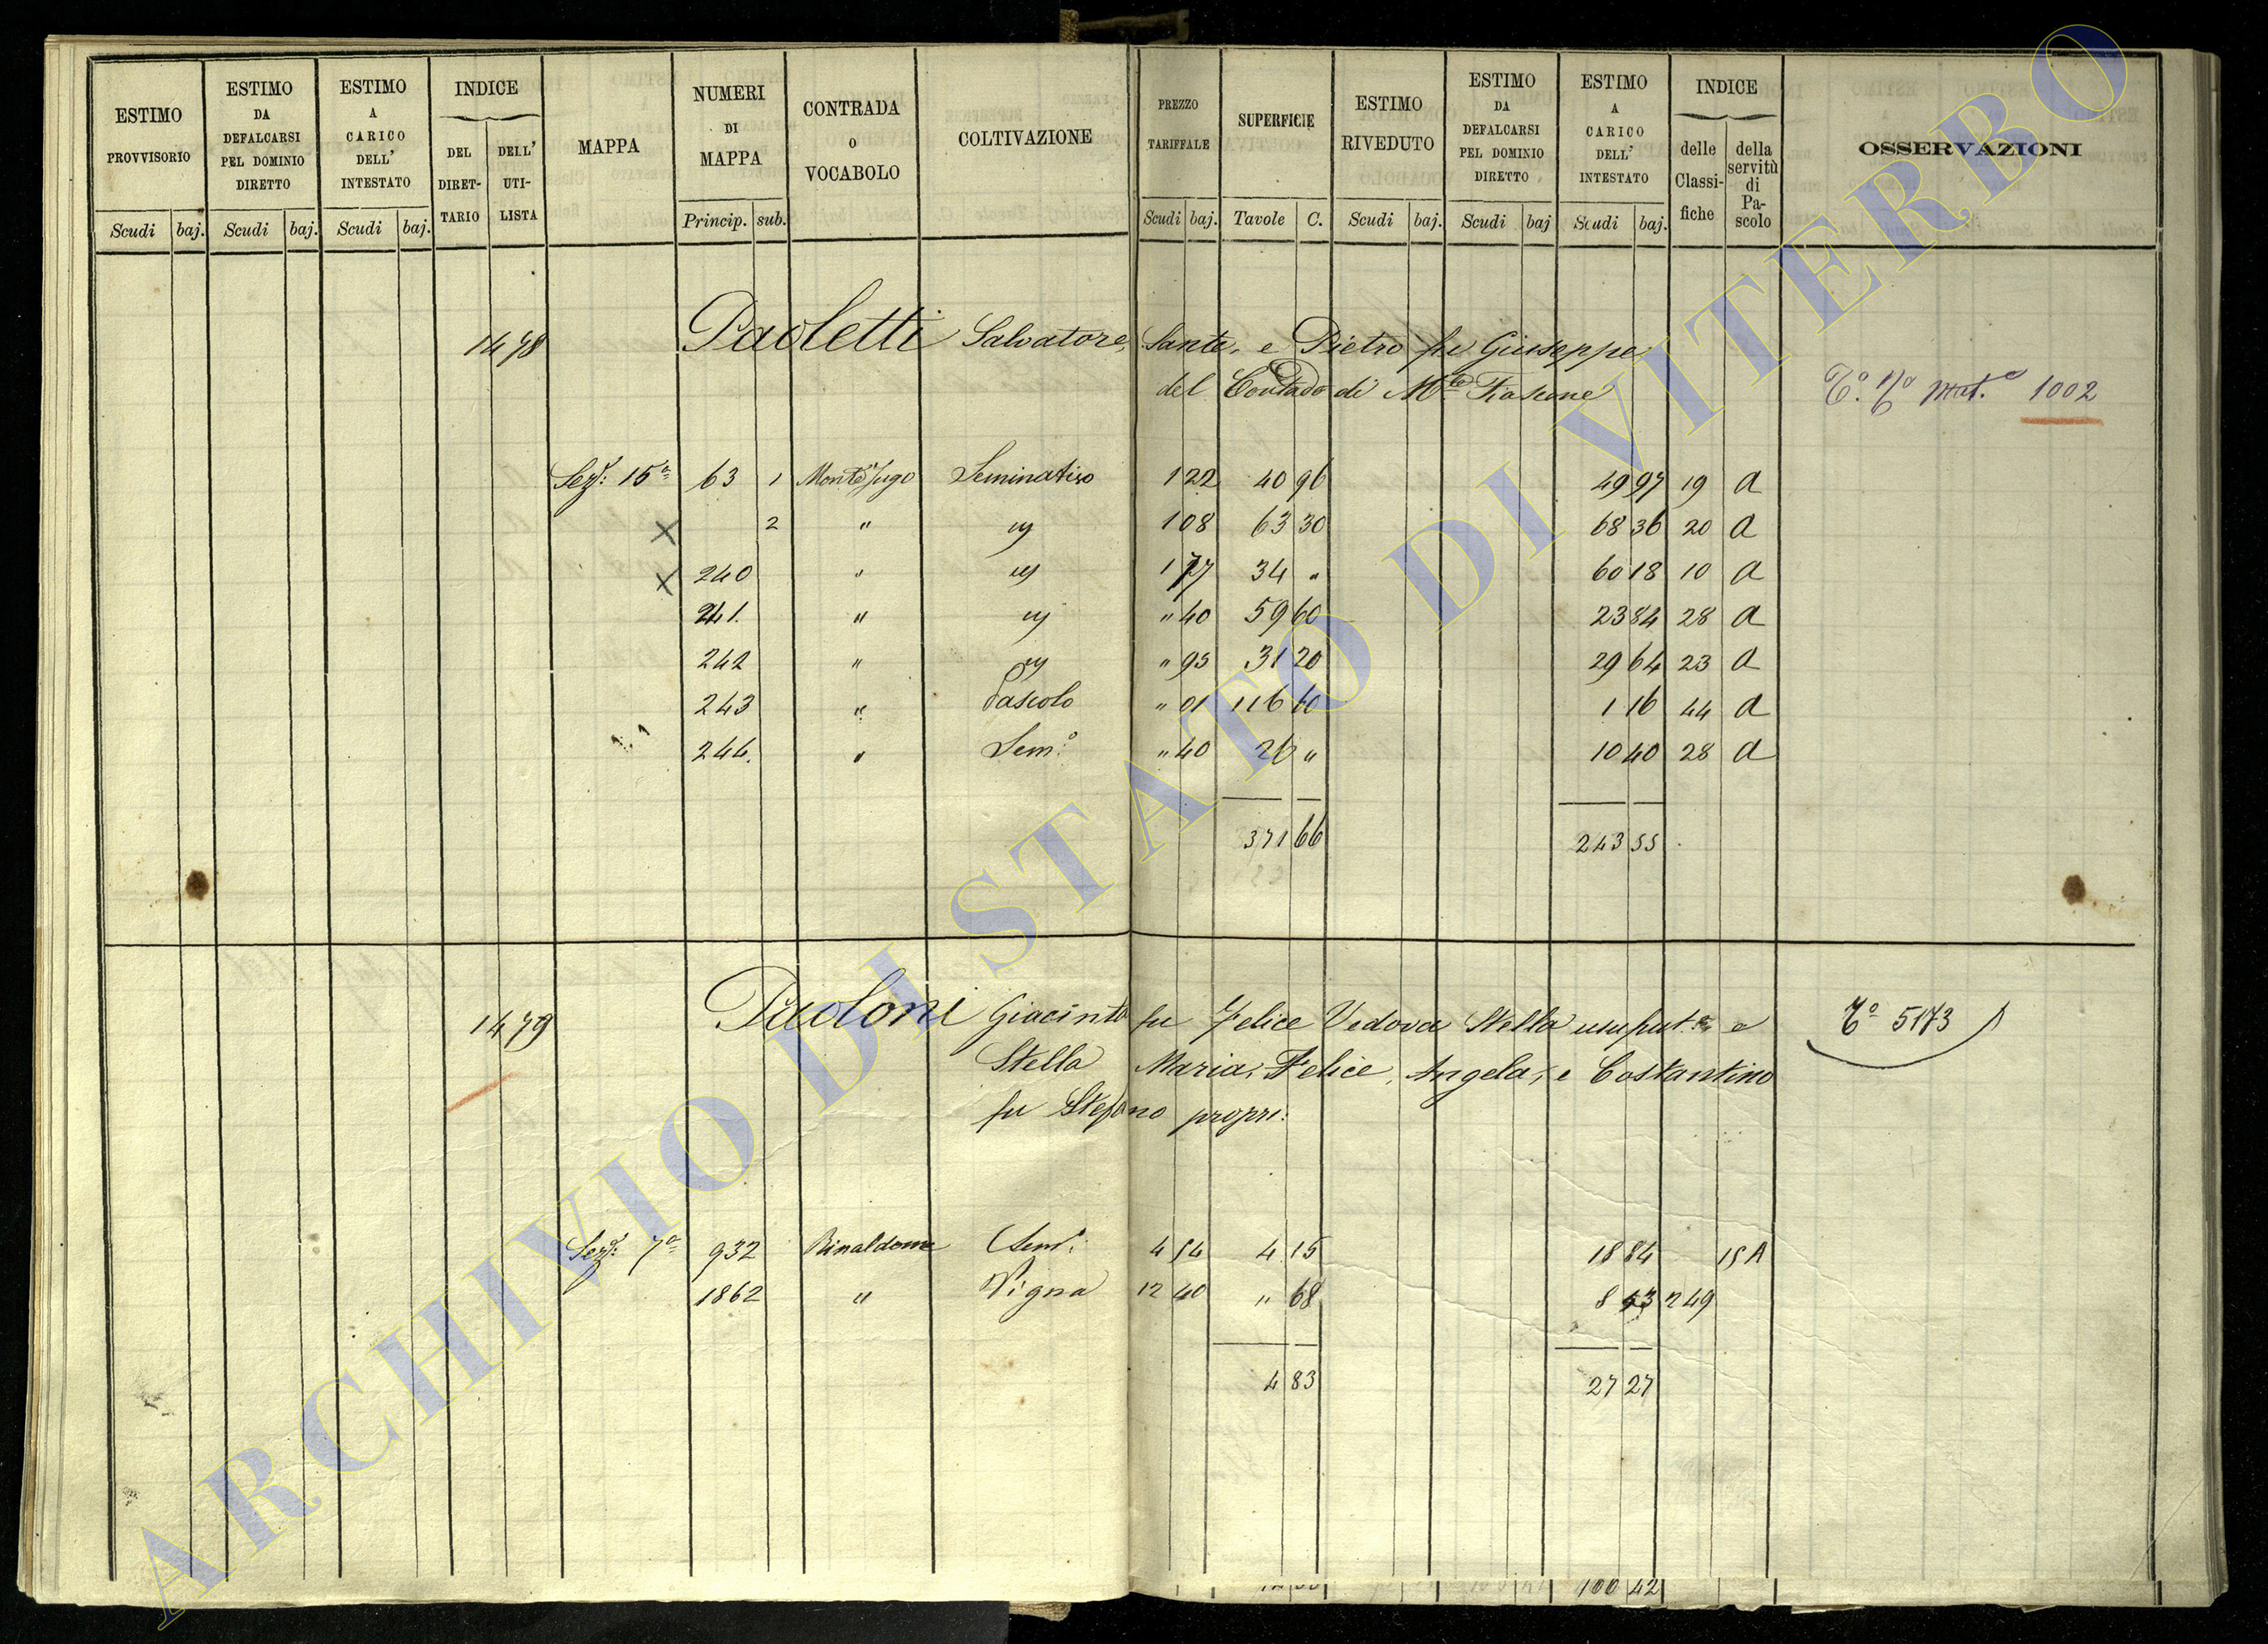 ESTIMO PROVVISORIO Scudi baj.
ESTIMO DA DEFALCARSI PEL DOMINIO DIRETTO Scudi baj.
ESTIMO A CARICO DELL' INTESTATO Scudi baj.
INDICE DEL DIRETTARIO DELL' UTILISTA
MAPPA
NUMERI DI MAPPA Princip. sub.
CONTRADA O VOCABOLO
COLTIVAZIONE
PREZZO TARIFFALE Scudi baj.
SUPERFICIE Tavole C.
ESTIMO RIVEDUTO Scudi baj.
ESTIMO DA DEFALCARSI PEL DOMINIO DIRETTO Scudi baj
ESTIMO A CARICO DELL' INTESTATO Scudi baj.
INDICE delle Classifiche della servitù di Pascolo
OSSERVAZIONI
1478 Paoletti Salvatore, Sante, e Pietro fu Giuseppe
del Contado di M.te Fiascone
Mat. 1002
Sez.: 15a 63 1 Seminativo 1 22 40 96 49 97 19 a
X 2 " 1 08 63 30 68 36 20 a
X 240 " 1 77 34 " 60 18 10 a
241. " " 40 59 60 23 84 28 a
242 " " 95 31 20 29 64 23 a
243 " Pascolo " 01 116 60 1 16 44 a
244. " Sem.o " 40 26 " 10 40 28 a
371 66 243 55
1479 Paoloni Giacinta fu Felice Vedova Stella usufrut.a e
Stella Maria, Felice, Angela, e Costantino
fu Stefano propri:
To 5173
Sez.: 7a 932 Rinaldone Sem.o 4 54 4 15 18 84 15 A
1862 " Vigna 12 40 " 68 8 43 249
4 83 27 27
100 42
ARCHIVIO DI STATO DI VITERBO